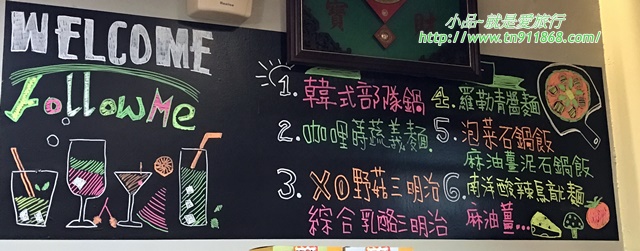 小品-就是愛旅行
http://www.tn911868.com/
WELCOME
followMe
1. 韓式部隊鍋
2. 咖哩時蔬義麵
3. XO野菇三明治
綜合乳酪三明治
4. 羅勒青醬麵
5. 泡菜石鍋飯
麻油薑泥石鍋飯
6. 南洋酸辣烏龍麵
麻油薑...